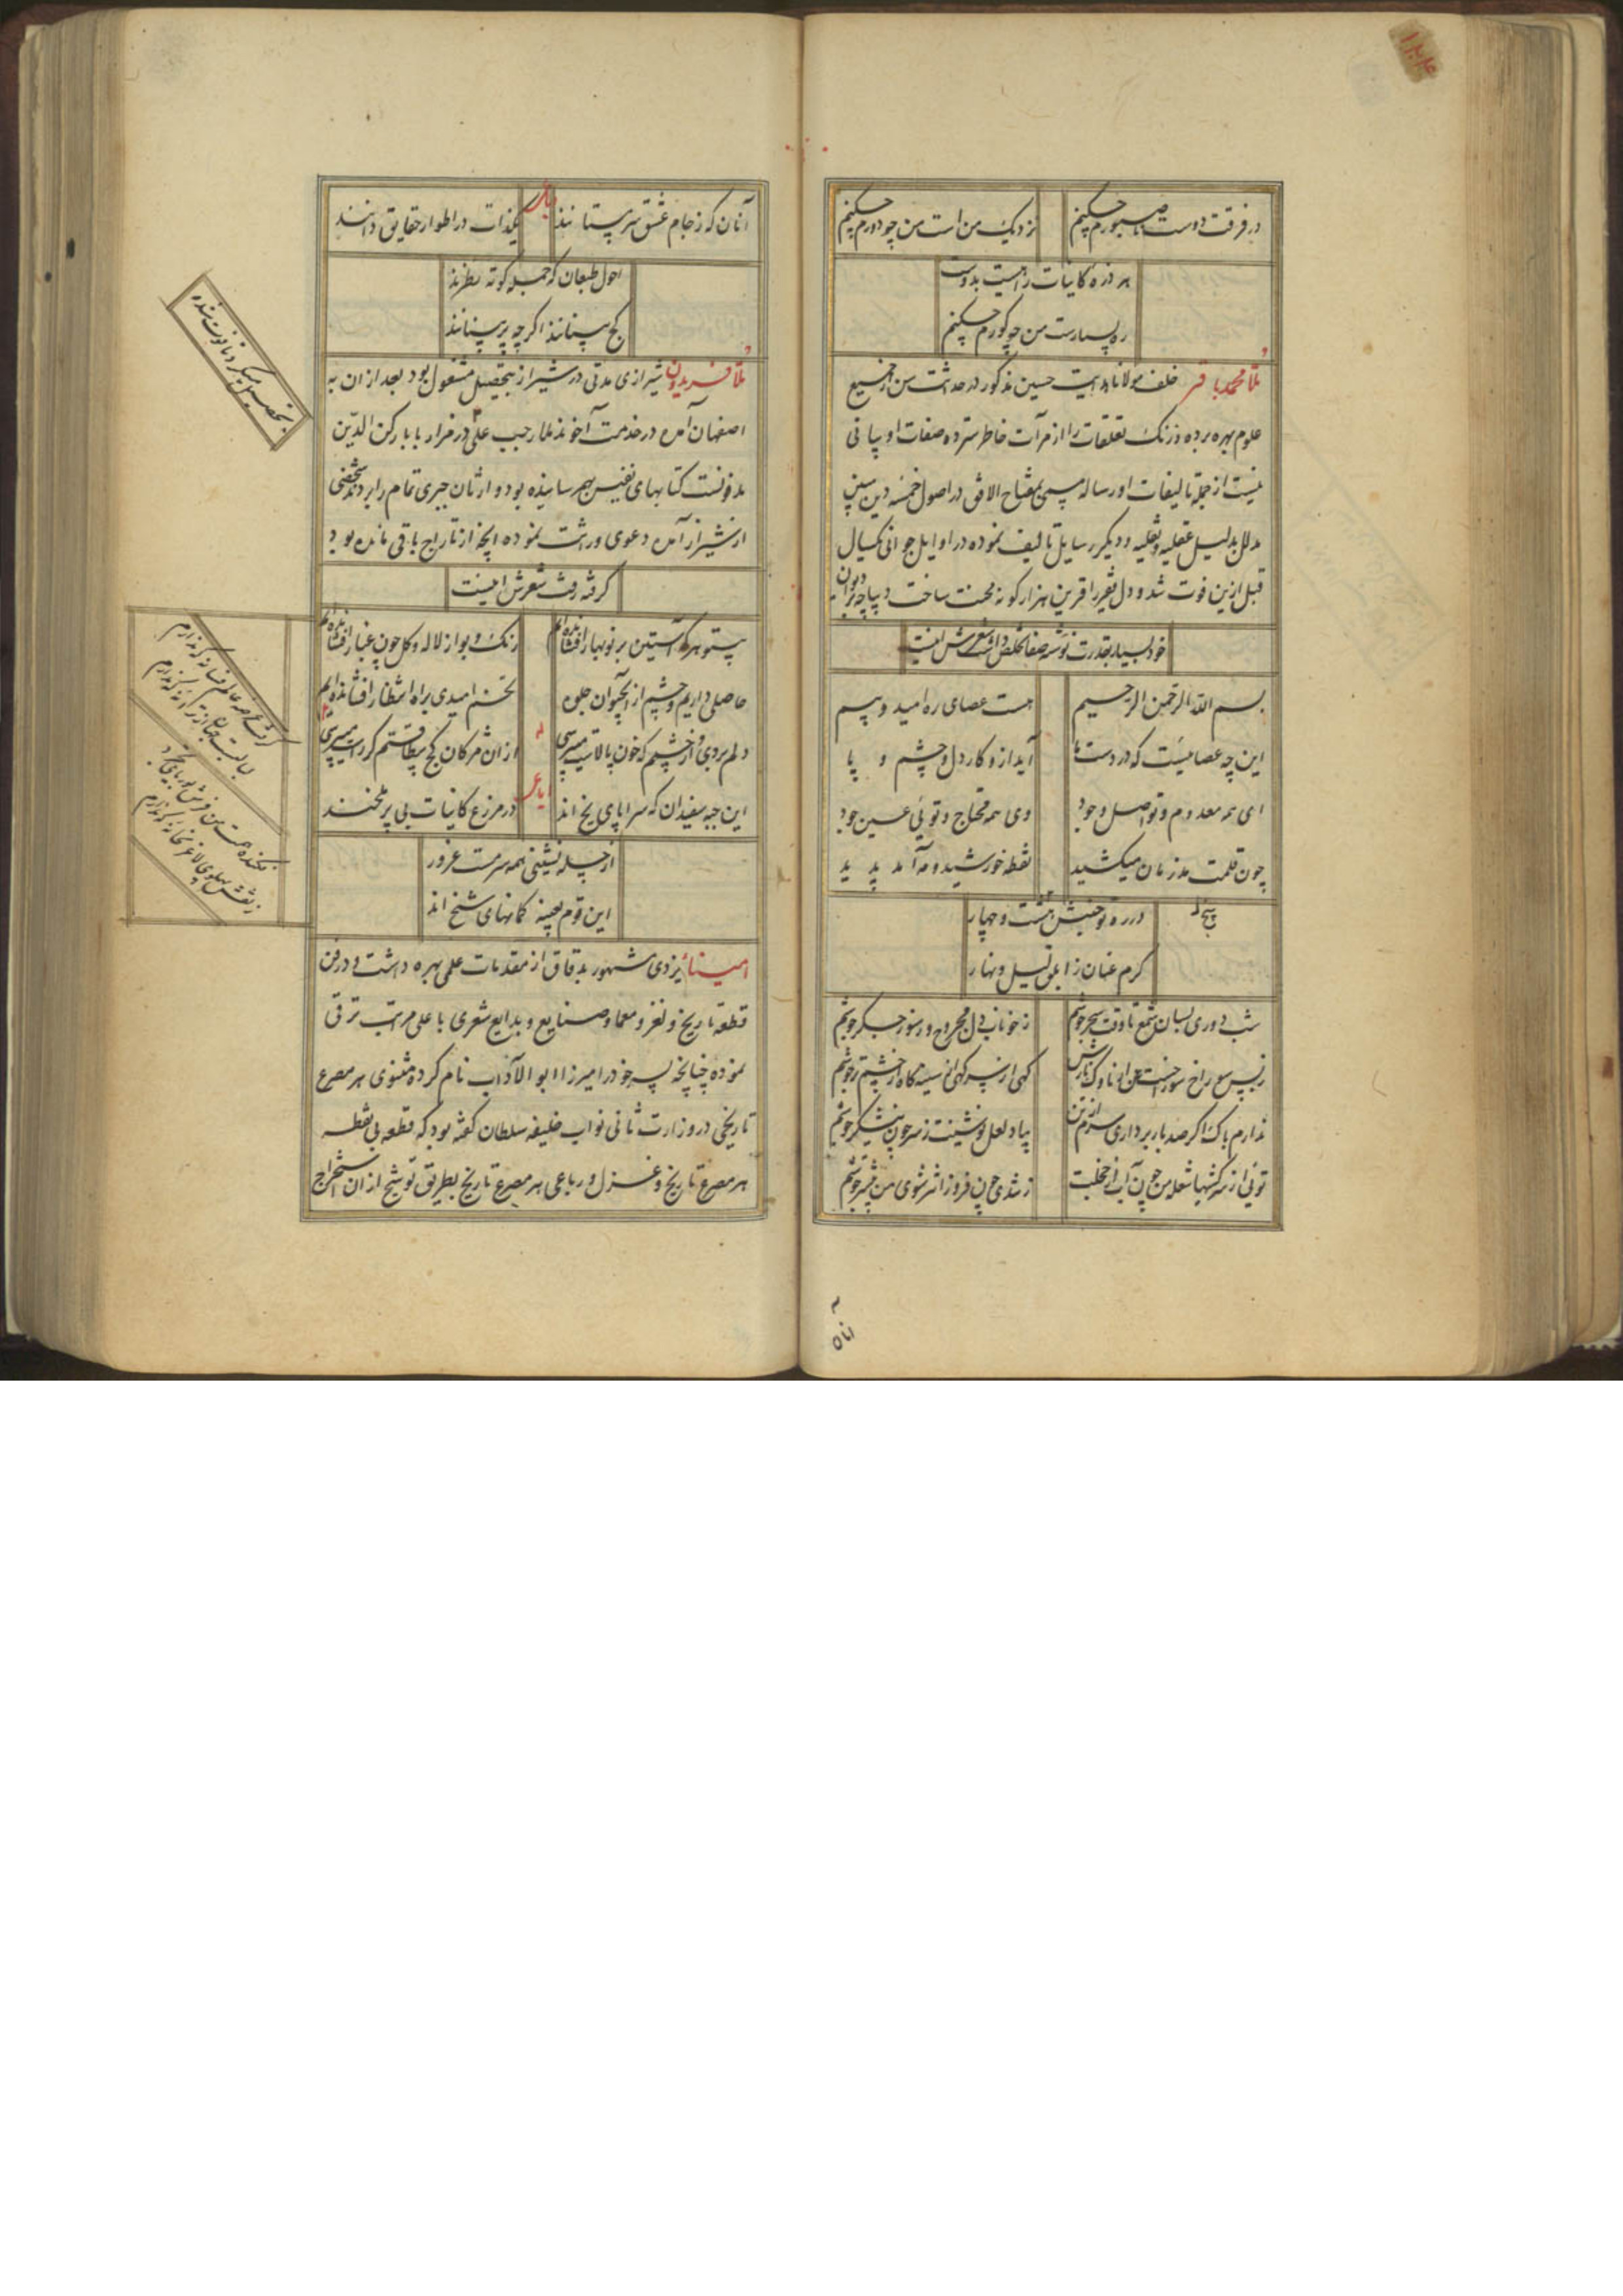 در فرقت دوست ناصبورم چکنم
نزدیک من است من چو دورم چکنم
هر ذره کاینات راهیست بدوست
ره بسیارست من چو کورم چکنم
ملا محمد باقر خلف مولانا هدایت حسین مذکور در حداثت سن از جمیع
علوم بهره برده و زنک تعلقات را از مرآت خاطر سترده صفات او بیانی
نیست از جمله تالیفات او رساله مسمی بمفتاح الافق در اصول خمسه دین مبین
مدلل بدلیل عقلیه و نقلیه و دیگر رسایل تالیف نموده در اوایل جوانی یکسال
قبل ازین فوت شد و دل فقیر را قرین هزار کونه محنت ساخت دیباچه دیوان
خود بسیار بقدرت نوشته صفا تخلص داشت شعرش اینست
بسم الله الرحمن الرحیم
هست عصای ره امید و بیم
این چه عصاییست که در دست ما
آید ازو کار دل و چشم و پا
ای همه معدوم و تو اصل وجود
وی همه محتاج و تویی عین جود
چون قلمت مد زمان میکشید
نقطه خورشید و مه آمد پدید
در ره تو جنبش هشت و چهار
کرم عنان ز ابلق لیل و نهار
شب دوری بسان شمع تا وقت سحر جوشم
ز خوناب دل مجروح و سوز جکر جوشم
کهی از سر کهی از سینه کاه از چشم تر جوشم
ندارم باک اکر صد بار برداری سرم از تن
بیاد لعل نوشینت ز سر چون نیشکر جوشم
تویی از سرکشیها شعله من چون آب از خجلت
ز تندی چون فروزانتر شوی من بیشتر جوشم
آنان که ز جام عشق سرمستانند
یکذات در اطوار حقایق دانند
احول طبعان که جمله کوته نظرند
کج میبینند اگر چه بر میبینند
ملا فریدون شیرازی مدتی در شیراز بتحصیل مشغول بود بعد از ان به
اصفهان آمده در خدمت آخوند ملا رجب علی در مزار بابا رکن الدین
مدفونست کتابهای نفیس بهم رسانیده بود وارثان جبری تمام را بردند شخصی
از شیراز آمده دعوی وراثت نموده آنچه از تاراج باقی مانده بود
گرفته رفت شعرش اینست
بتحصیل میکرد تا فوت شده
بیتو هر که آستین بر نوبهار افشانده‌ام
رنک و بو از لاله و کل چون غبار افشانده‌ام
حاصلی داریم و چشم از
تخم امیدی براه انتظار افشانده‌ایم
دلم بردی و از چشمم که خون پالاست میپرسی
از ان مژکان کج بیطاقتم کر راست میپرسی
این جبه سفیدان که سراپای یخ اند
در مزرع کاینات بی بر ملخند
از چله نشینی همه سرمست غرور
این قوم بعینه کمانهای شخ اند
امینا یزدی مشهور بدقاق از مقدمات علمی بهره داشت و در فن
قطعه تاریخ و لغز و معما و صنایع و بدایع شعری با علی مراتب ترقی
نموده چنانچه پسر خود را میرزا ابو الآداب نام کرده مثنوی هر مصرع
تاریخی در وزارت ثانی نواب خلیفه سلطان کفته بود که قطعه بی نقطه
هر مصرع تاریخ و غزل و رباعی هر مصرع تاریخ بطریق توشیح از ان استخراج